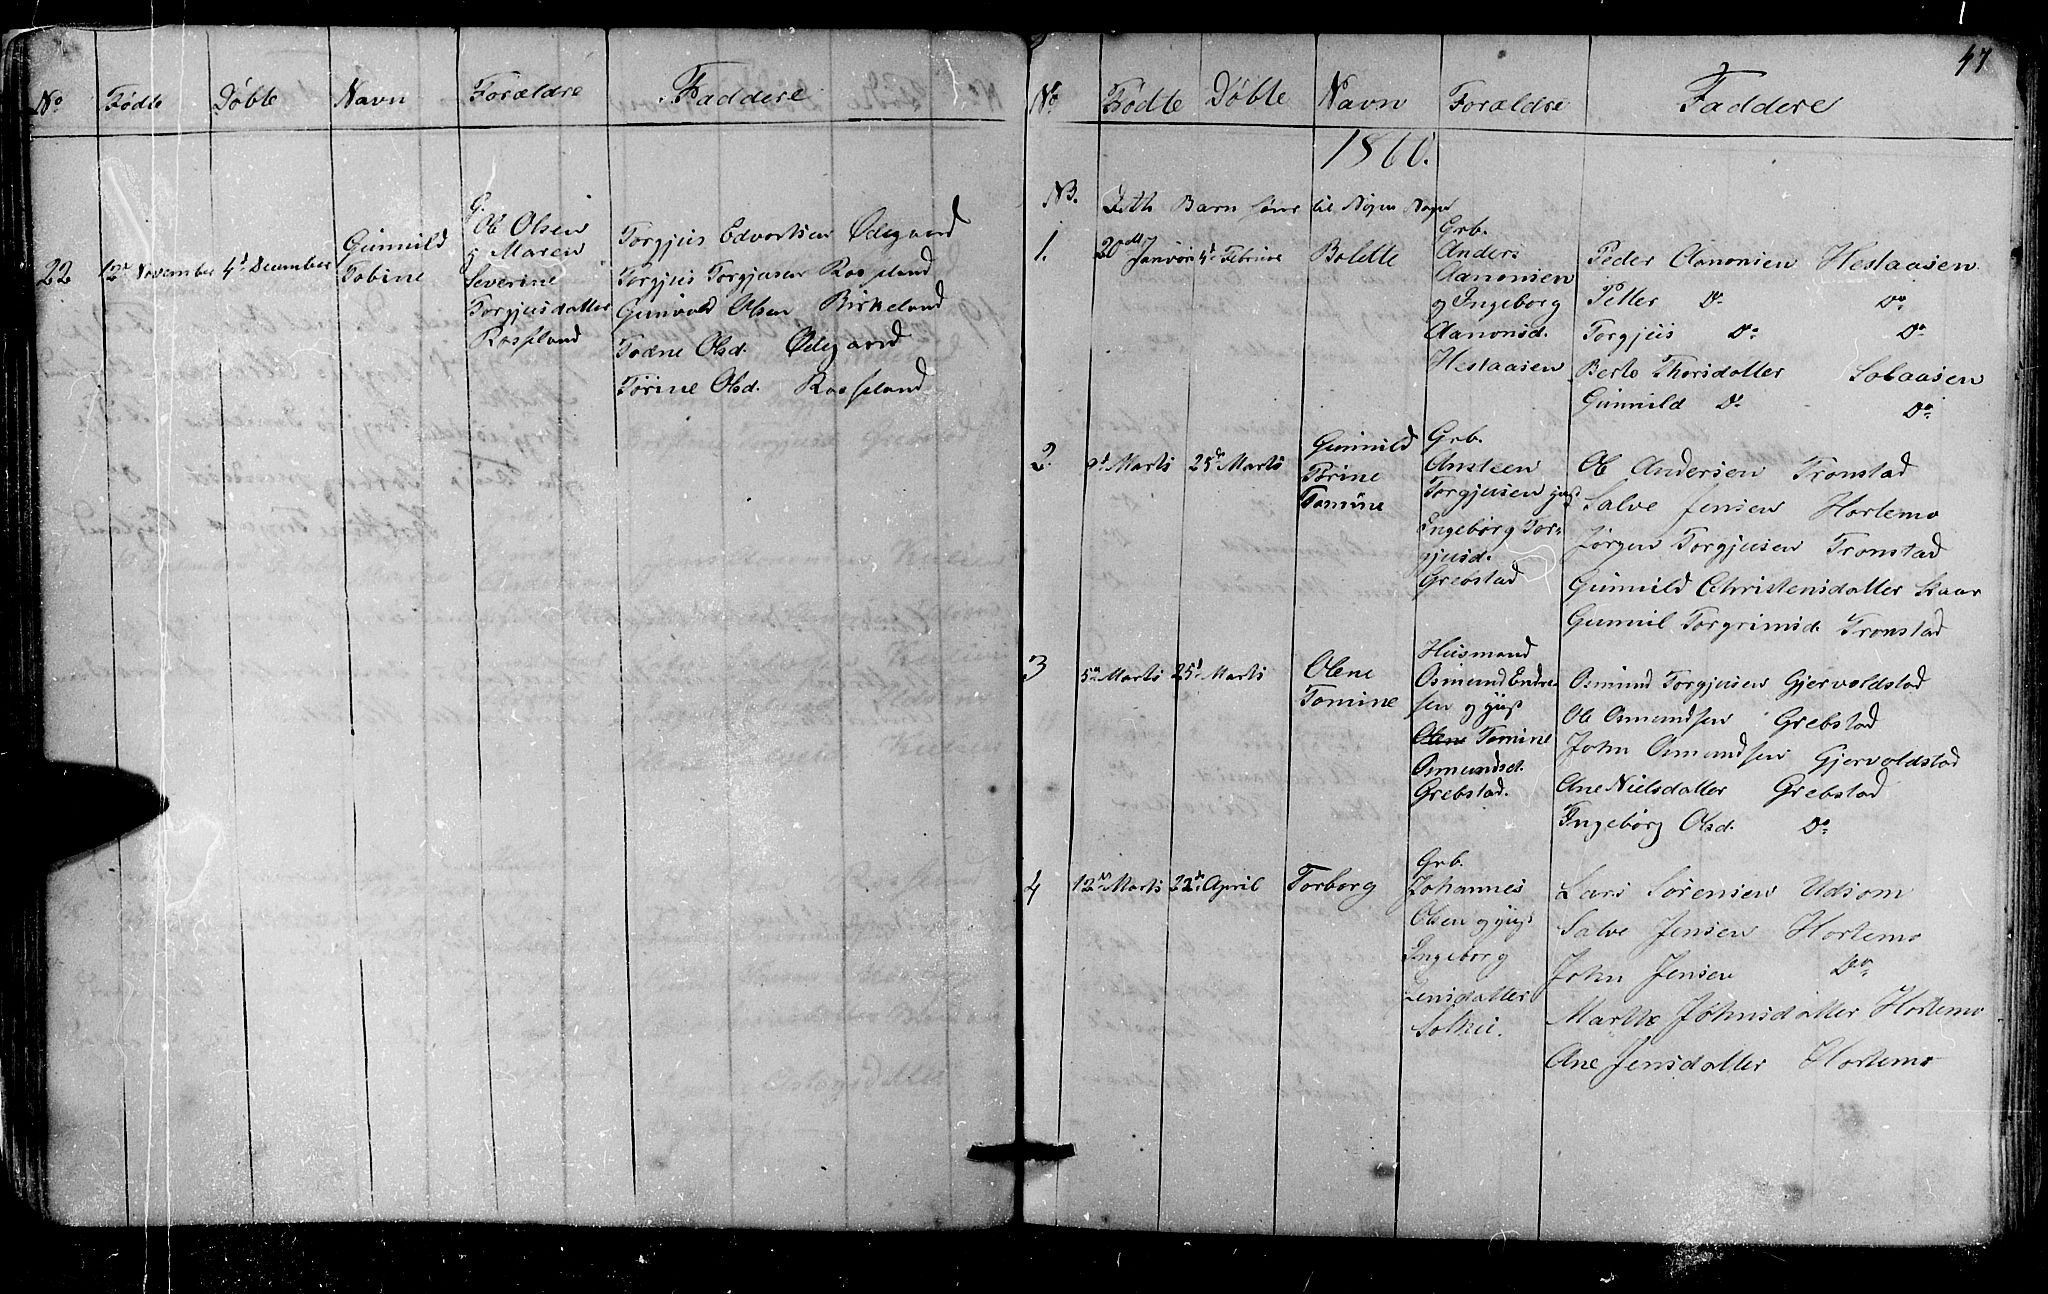 No Fødte Døbte Navn Forældre Faddere
22 12te November 4d December Gunnild Tobine
G. Ole Olsen
g Maren
Severine
Torgjusdatter
Rosseland
Torgjus Edvartsen Ødegaard
Torgjus Torgjusen Rosseland
Gunvald Olsen Birkeland
Todne Olsd. Ødegaard
Torine Olsd. Rosseland
47
No Fødte Døbte Navn Forældre Faddere
1860.
NB. Barn til Nogen
1. 20de Januar 4d Februar Bolette
Grb.
Anders
Aanonsen
og Ingeborg
Aanonsd.
Hestaasen
Peder Aanonsen Hestaasen
Petter Do Do
Torgjus Do Do
Berte Thorsdatter Solaasen
Gunnild Do Do
2. 9d Marts 25de Marts
Gunnild
Torine
Tomine
Grb.
Ansteen
Torgjusen gust
Ingeborg Tor-
gjusd.
Grebstad
Ole Andersen Tronstad
Salve Jensen Hortemo
Jørgen Torgjusen Tronstad
Gunnild Christensdatter Skaar
Gunnil Torgrimsd. Tronstad
3 5te Marts 25d Marts
Olene
Tomine
Husmand
Osmund Endre-
sen og gust
Olene Tomine
Osmundsd.
Grebstad.
Osmund Torgjusen Gjervoldstad
Ole Osmundsen Grebstad
John Osmundsen Gjervoldstad
Ane Nielsdatter Grebstad
Ingebørg Olsd. Do
4 12te Marts 22de April Torborg
Grb.
Johannes
Olsen og gust
Ingeborg
Jensdatter
Lars Sørensen Udsom
Salve Jensen Hortemo
John Jensen Do
Marthe Johnsdatter Hortemo
Ane Jensdatter Hortemo